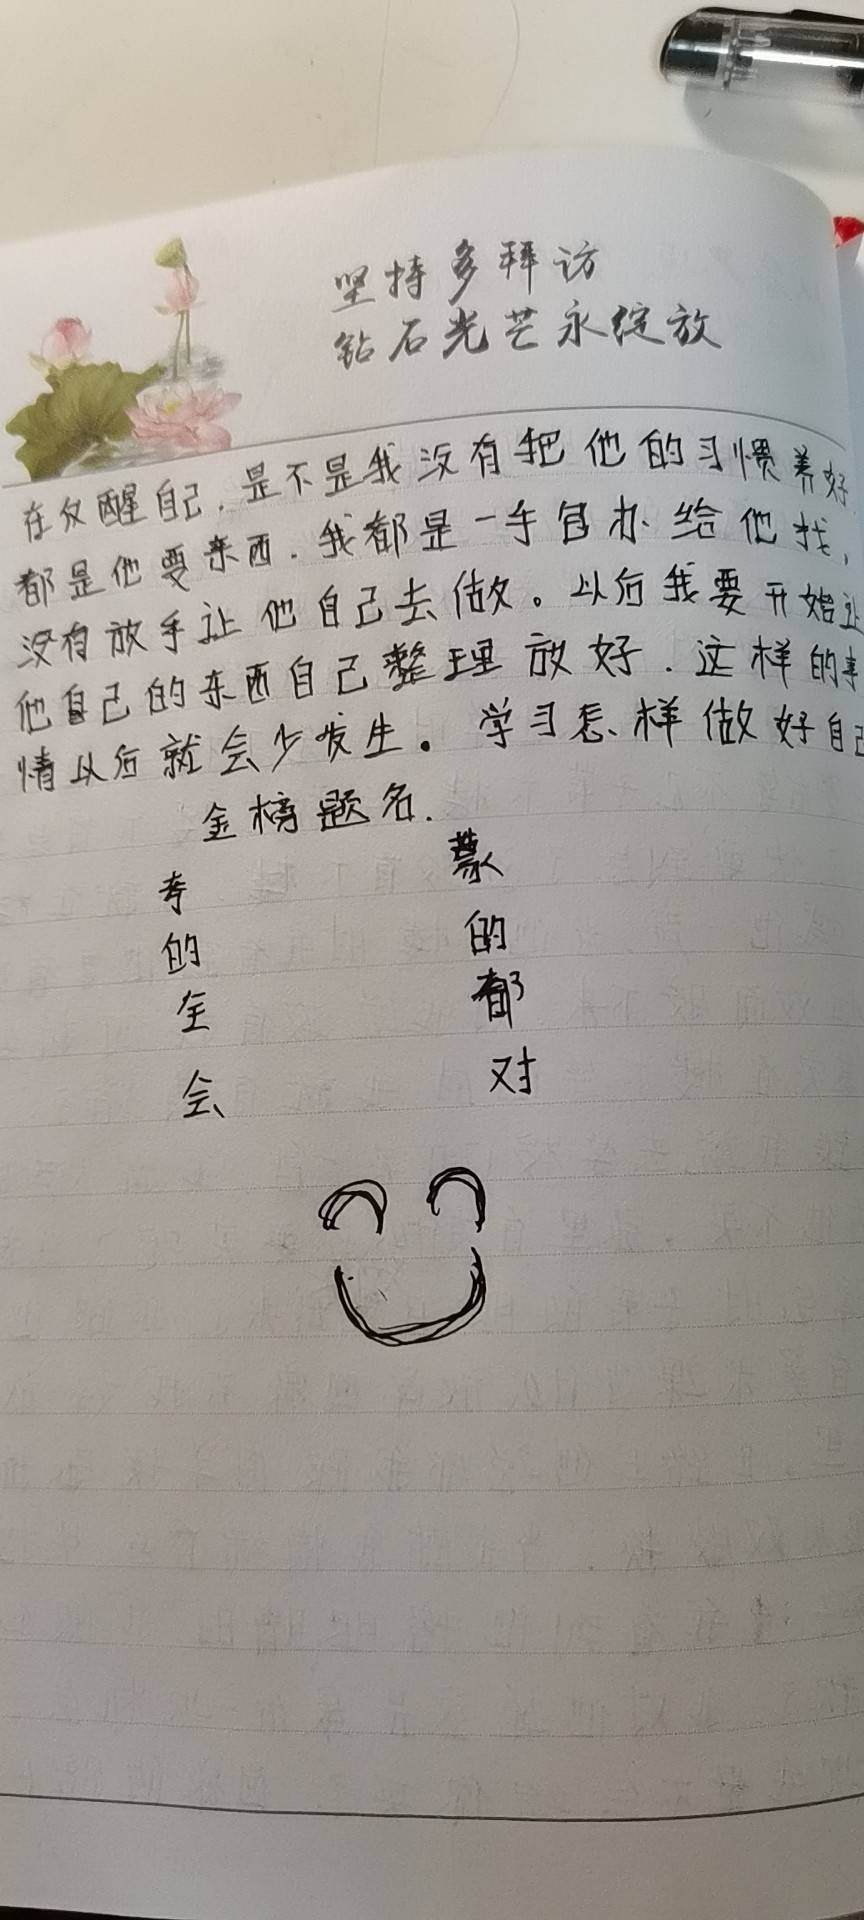 坚持多拜访
钻石光芒永绽放
在反醒自己.是不是我没有把他的习惯养好
都是他要东西.我都是一手包办给他找,
没有放手让他自己去做。以后我要开始让
他自己的东西自己整理放好.这样的事
情以后就会少发生。学习怎样做好自己
金榜题名.
考的全会
蒙的都对